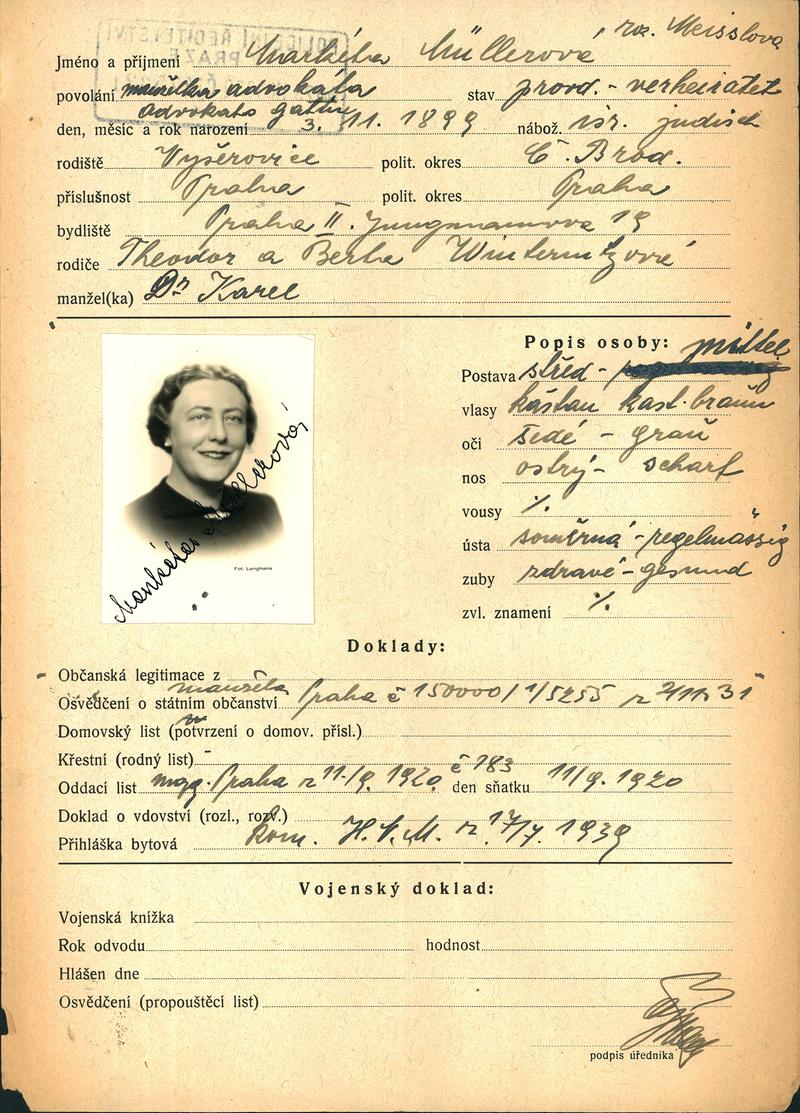 POLICEJNÍ ŘEDITELSTVÍ
PRAZE
Jméno a příjmení Markéta Müllerová roz. Meisslova
povolání manželka advokáta stav provd. - verheiratet
advokats gattin
den, měsíc a rok narození 3. 11. 1899 nábož. isr. jüdisch
rodiště Vyšerovice polit. okres Č. Brod.
příslušnost Praha polit. okres Praha
bydliště Praha II. Jungmannova 19
rodiče Theodor a Berta
manžel(ka) Dr Karel
Popis osoby:
Postava střed - mittel
vlasy kaštan kast. braun
oči šedé - grau
nos ostrý - scharf
vousy ./.
ústa souměrná - regelmässig
zuby zdravé - gesund
zvl. znamení ./.
Markéta Müllerová
Fot. Langhans
Doklady:
Občanská legitimace z
manžela
Osvědčení o státním občanství Praha č 150000/1/5255 z 2/11. 31
Domovský list (potvrzení o domov. přísl.)
Křestní (rodný list) -
Oddací list mag. Praha z 11./9. 1920 č 783 den sňatku 11/9. 1920
Doklad o vdovství (rozl., rozv.)
Přihláška bytová kom. H. V. M. z 17/7. 1939
Vojenský doklad:
Vojenská knížka
Rok odvodu hodnost
Hlášen dne
Osvědčení (propouštěcí list)
podpis úředníka